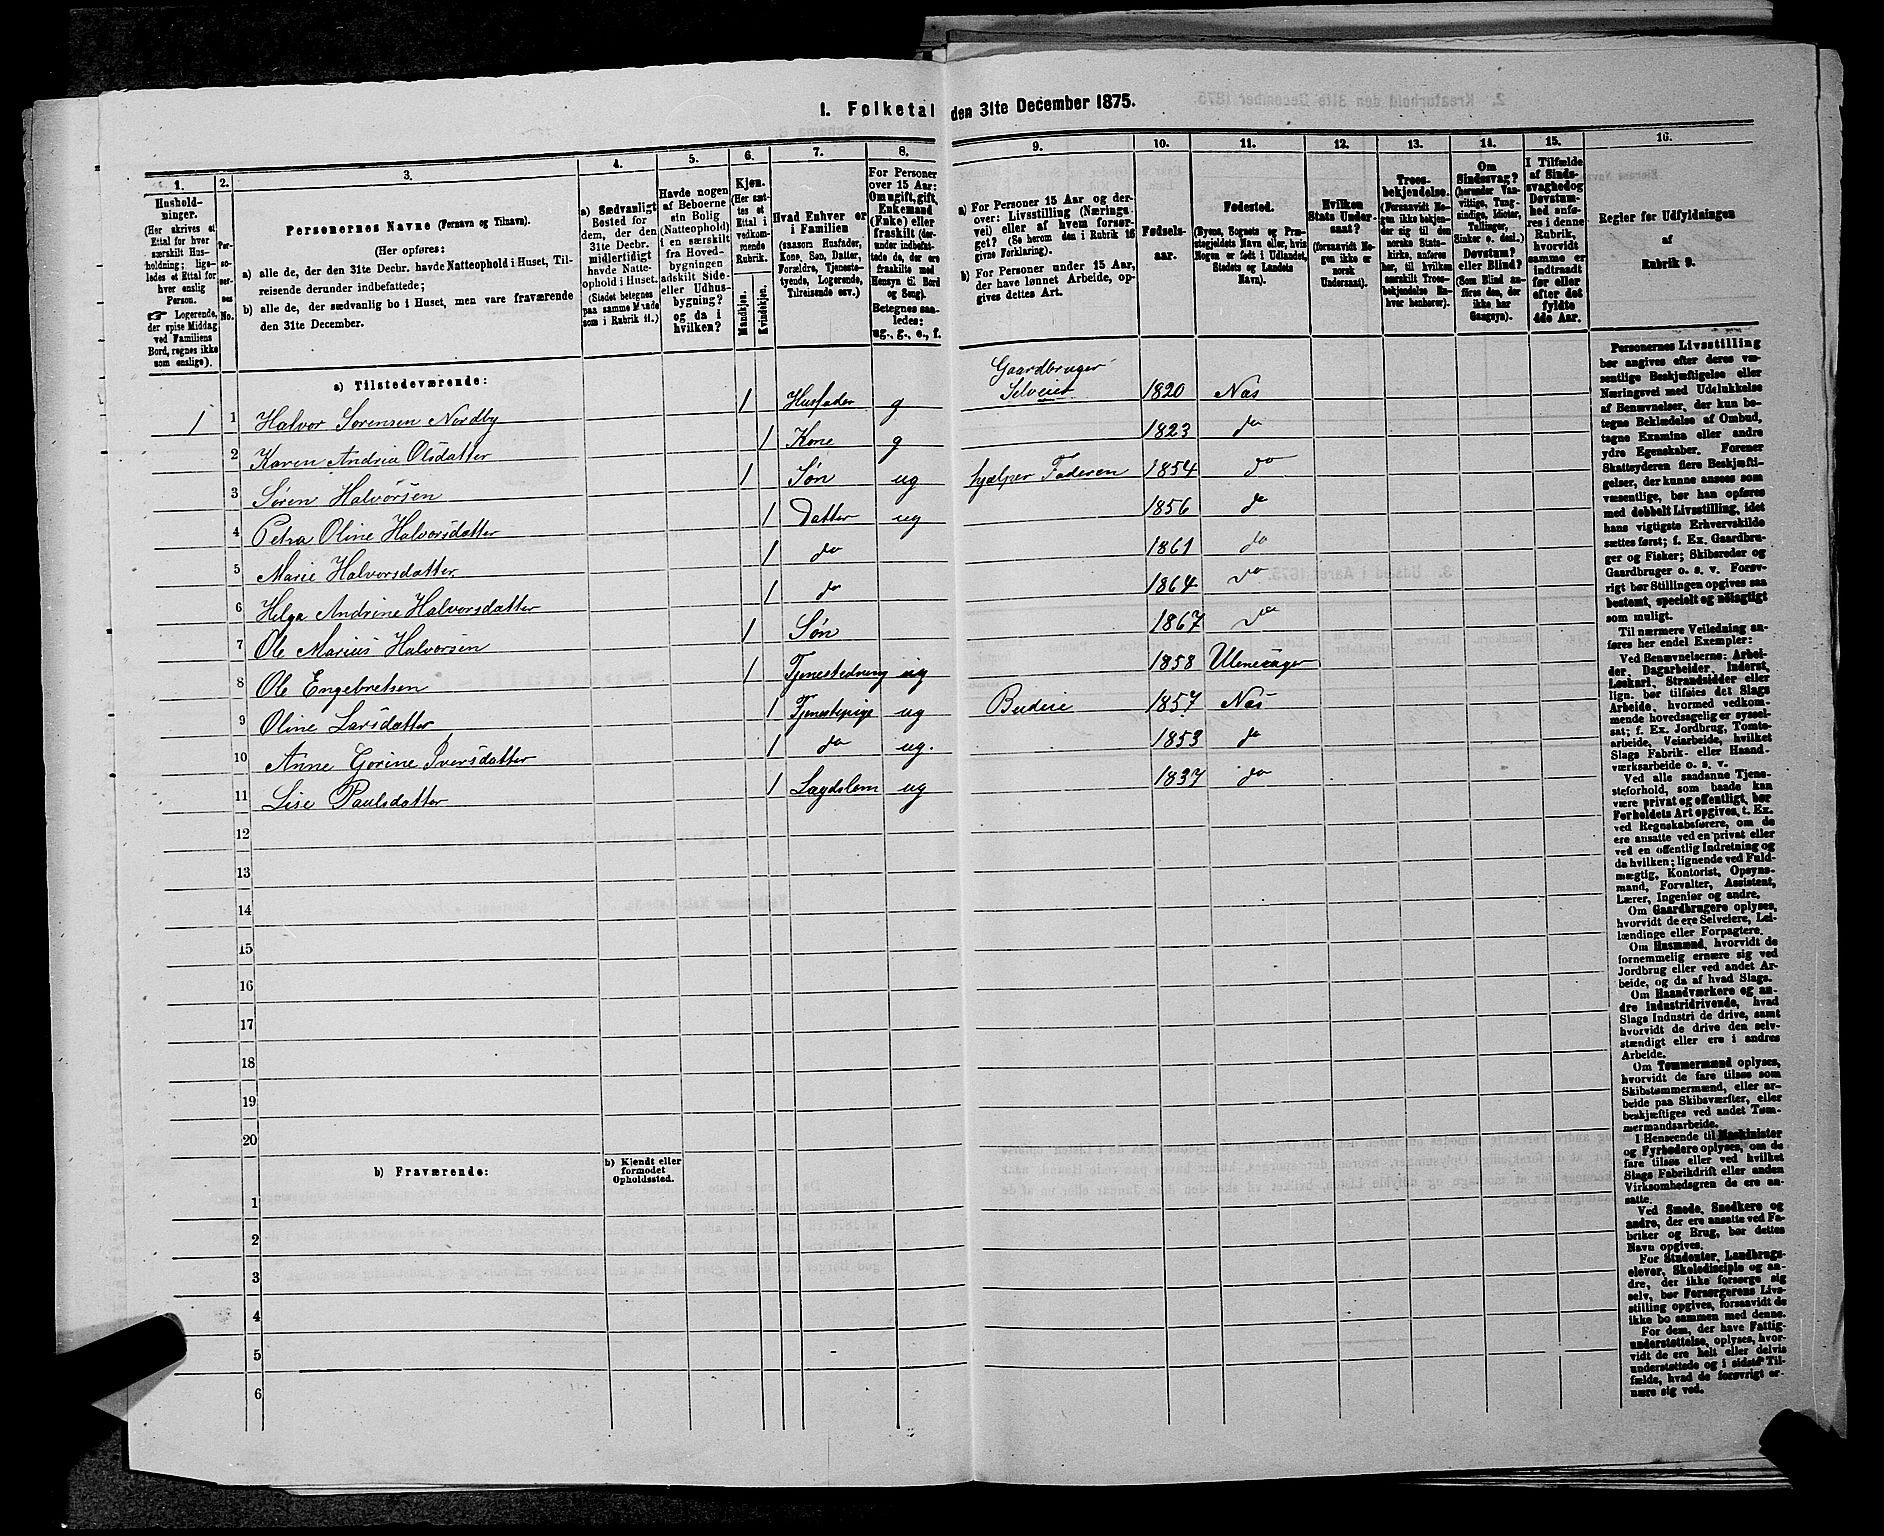 1. Folketal den 31te December 1875.
1. 2. 3. 4. 5. 6. 7. 8. 9. 10. 11. 12. 13. 14. 15. 16.
Hushold-
ninger.
(Her skrives et
Ettal for hver
særskilt Hus-
holdning; lige-
ledes et Ettal for
hver enslig
Person.
☞ Logerende,
der spise Middag
ved Familiens
Bord, regnes ikke
som enslige).
Per-
so-
ner-
nes
No.
Personernes Navne (Fornavn og Tilnavn).
(Her opføres:
a) alle de, der den 31te Decbr. havde Natteophold i Huset, Til-
reisende derunder indbefattede;
b) alle de, der sædvanlig bo i Huset, men vare fraværende
den 31te December.
a) Sædvanligt
Bosted for
dem, der den
31te Decbr.
midlertidigt
havde Natte-
ophold i Huset.
(Stedet betegnes
paa samme Maade
som i Rubrik 11.)
Havde nogen
af Beboerne
sin Bolig
(Natteophold)
i en særskilt
fra Hoved-
bygningen
adskilt Side-
eller Udhus-
bygning?
og da i
hvilken?
Kjøn.
(Her sæt-
tes et
Ettal i
vedkom-
mende
Rubrik.
Mandkjøn.
Kvindekjøn.
Hvad Enhver er
i Familien
(saasom Husfader,
Kone, Søn, Datter,
Forældre, Tjeneste-
tyende, Logerende,
Tilreisende osv.)
For Personer
over 15 Aar:
Om ugift, gift,
Enkemand
(Enke) eller
fraskilt (der-
under indbefat-
tede de, der ere
fraskilte med
Hensyn til Bord
og Seng).
Betegnes saa-
ledes:
ug., g., e., f.
a) For Personer 15 Aar og der-
over: Livsstilling (Nærings-
vei) eller af hvem forsør-
get? (Se herom den i Rubrik 16
givne Forklaring).
b) For Personer under 15 Aar,
der have lønnet Arbeide, op-
gives dettes Art.
Fødsels-
aar.
Fødested.
(Byens, Sognets og Præ-
stegjeldets Navn eller, hvis
Nogen er født i Udlandet,
Stedets og Landets
Navn).
Hvilken
Stats Under-
saat?
(forsaavidt No-
gen ikke er
norsk
Undersaat).
Troes-
bekjendelse.
(Forsaavidt No-
gen ikke bekjen-
der sig til den
norske Stats-
kirke, anføres
her, til hvilken
særskilt Troes-
bekjendelse En-
hver henhører).
Om
Sindssvag?
(herunder Van-
vittige, Tung-
sindige, Idioter,
Tullinger,
Sinker o. desl.)
Døvstum?
eller Blind?
(Som Blind an-
føres den, der
ikke har
Gangsyn).
I Tilfælde
af Sinds-
svaghed og
Døvstum-
hed anfø-
res i denne
Rubrik,
hvorvidt
samme er
indtraadt
før eller
efter det
fyldte
4de Aar.
Regler for Udfyldningen
af
Rubrik 9.
a) Tilstedeværende:
1 1 Halvor Sørensen Nordby 1 Husfader g Gaardbruger Selveier 1820 Nas
2 Karen Andria Olsdatter 1 Kone g 1823 do
3 Søren Halvorsen 1 Søn ug hjælper Faderen 1854 do
4 Petra Oline Halvorsdatter 1 Datter ug 1856 do
5 Marie Halvorsdatter 1 do 1861 do
6 Helga Andrine Halvorsdatter 1 do 1864 do
7 Ole Marius Halvorsen 1 Søn 1867 do
8 Ole Engebretsen 1 Tjenestedreng ug 1858 Ulensager
9 Oline Larsdatter 1 Tjenestepige ug Budeie 1857 Nas
10 Anne Gorine Iversdatter 1 do ug. 1853 do
11 Lise Paulsdatter 1 Lægdslem ug 1837 do
12
13
14
15
16
17
18
19
20
b) Fraværende: b) Kjendt eller
formodet
Opholdssted.
1
2
3
4
5
6
Personernes Livsstilling
bør angives efter deres væ-
sentlige Beskjæftigelse eller
Næringsvei med Udelukkelse
af Benævnelser, der kun be-
tegne Beklædelse af Ombud,
tagne Examina eller andre
ydre Egenskaber. Forener
Skatteyderen flere Beskjæfti-
gelser, der kunne ansees som
væsentlige, bør han opføres
med dobbelt Livsstilling, idet
hans vigtigste Erhvervskilde
sættes først; f. Ex. Gaardbru-
ger og Fisker; Skibsreder og
Gaardbruger o. s. v. Forøv-
rigt bør Stillingen opgives saa
bestemt, specielt og nøiagtigt
som muligt.
Til nærmere Veiledning an-
føres her endel Exempler:
Ved Benævnelserne: Arbei-
der, Dagarbeider, Inderst,
Løskarl, Strandsidder eller
lign. bør tilføies det Slags
Arbeide, hvormed vedkom-
mende hovedsagelig er syssel-
sat; f. Ex. Jordbrug, Tomte-
arbeide, Veiarbeide, hvilket
Slags Fabrik- eller Haand-
værksarbeide o. s. v.
Ved alle saadanne Tjene-
steforhold, som baade kan
være privat og offentligt, bør
Forholdets Art opgives, t. Ex.
ved Regnskabsførere, om de
ere ansatte ved en privat eller
ved en offentlig Indretning og
da hvilken; lignende ved Fuld-
mægtig, Kontorist, Opsyns-
mand, Forvalter, Assistent,
Lærer, Ingeniør og andre.
Om Gaardbrugere oplyses,
hvorvidt de ere Selveiere, Lei-
lændinge eller Forpagtere.
Om Husmænd, hvorvidt de
fornemmelig ernære sig ved
Jordbrug eller ved andet Ar-
beide, og da af hvad Slags.
Om Haandværkere og an-
dre Industridrivende, hvad
Slags Industri de drive, samt
hvorvidt de drive den selv-
stændigt eller ere i andres
Arbeide.
Om Tømmermænd oplyses,
hvorvidt de fare tilsøs som
Skibstømmermænd, eller ar-
beide paa Skibsværfter, eller
beskjæftiges ved andet Tøm-
mermandsarbeide.
I Henseende til Maskinister
og Fyrbødere oplyses, om de
fare tilsøs eller ved hvilket
Slags Fabrikdrift eller anden
Virksomhedsgren de ere an-
satte.
Ved Smede, Snedkere og
andre, der ere ansatte ved Fa-
briker og Brug, bør dettes
Navn opgives.
For Studenter, Landbrugs-
elever, Skoledisciple og an-
dre, der ikke forsørge sig
selv, bør Forsørgerens Livs-
stilling opgives, forsaavidt de
ikke bo sammen med denne.
For dem, der have Fattig-
understøttelse, oplyses, hvor-
vidt de ere helt eller delvis
understøttede og i sidste Til-
fælde, hvad de forøvrigt er-
nære sig ved.